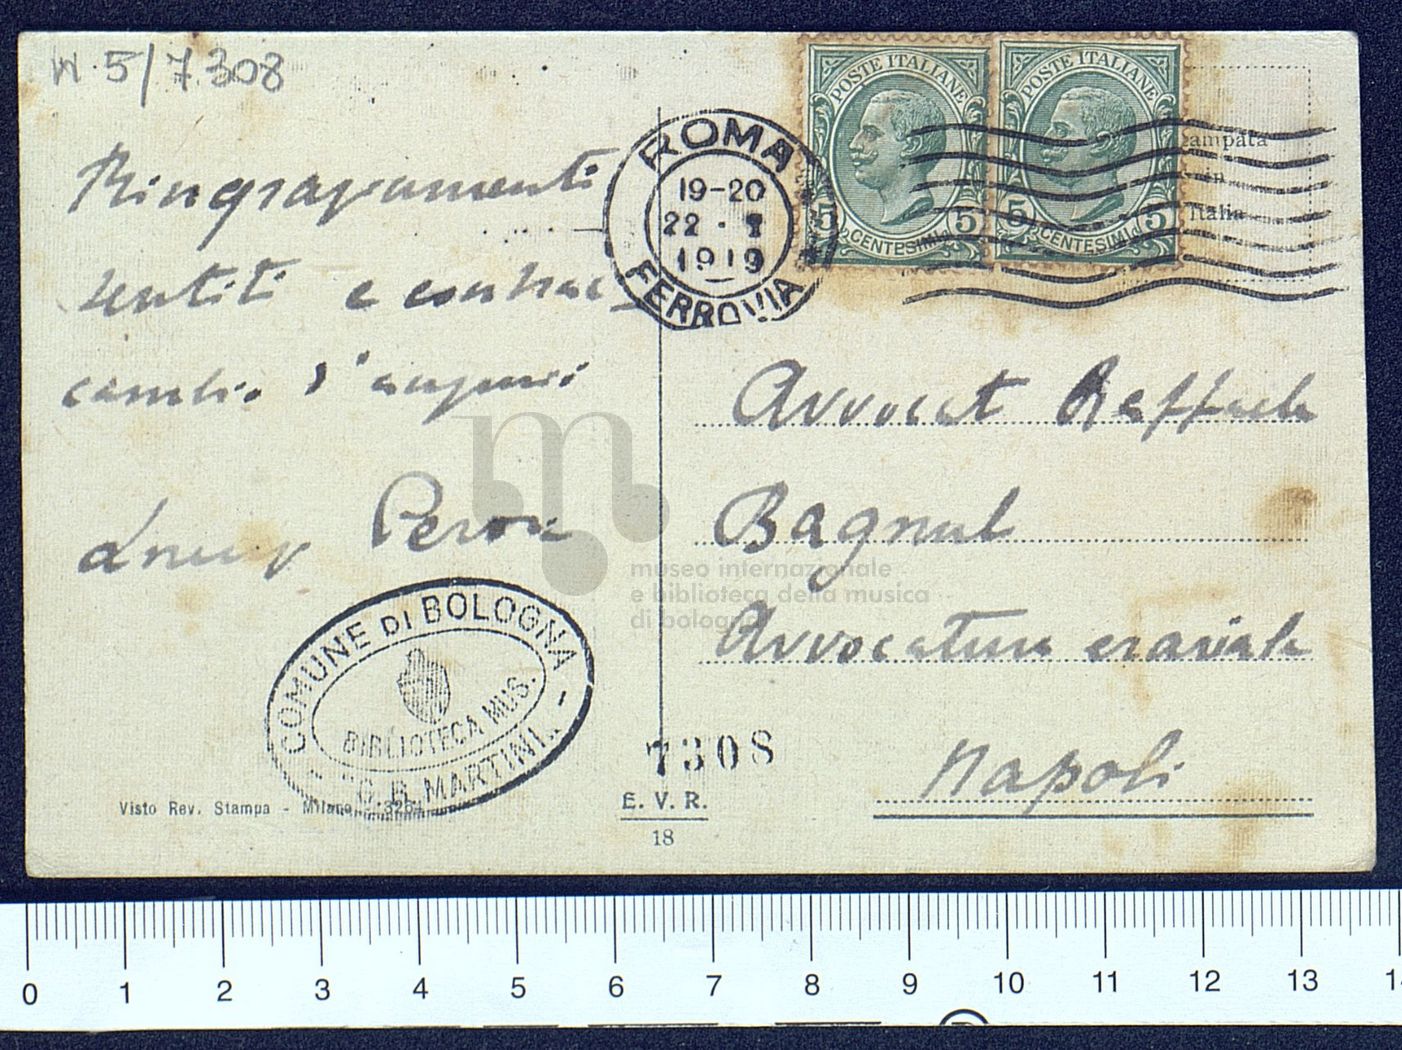 N 5/7308
Ringraziamenti
sentiti e contrac
cambio d'auguri
Peroni
POSTE ITALIANE
5 CENTESIMI 5
POSTE ITALIANE
5 CENTESIMI 5
ROMA
19-20
22
1919
FERROVIA
Stampata
in
Italia
Avvocat Raffaele
Bagnul
Avvocatura erariale
Napoli
museo internazionale
e biblioteca della musica
di bologna
COMUNE DI BOLOGNA
BIBLIOTECA MUS.
"G. B. MARTINI"
7308
Visto Rev. Stampa - Milano - 326
E. V. R.
18
0 1 2 3 4 5 6 7 8 9 10 11 12 13 14